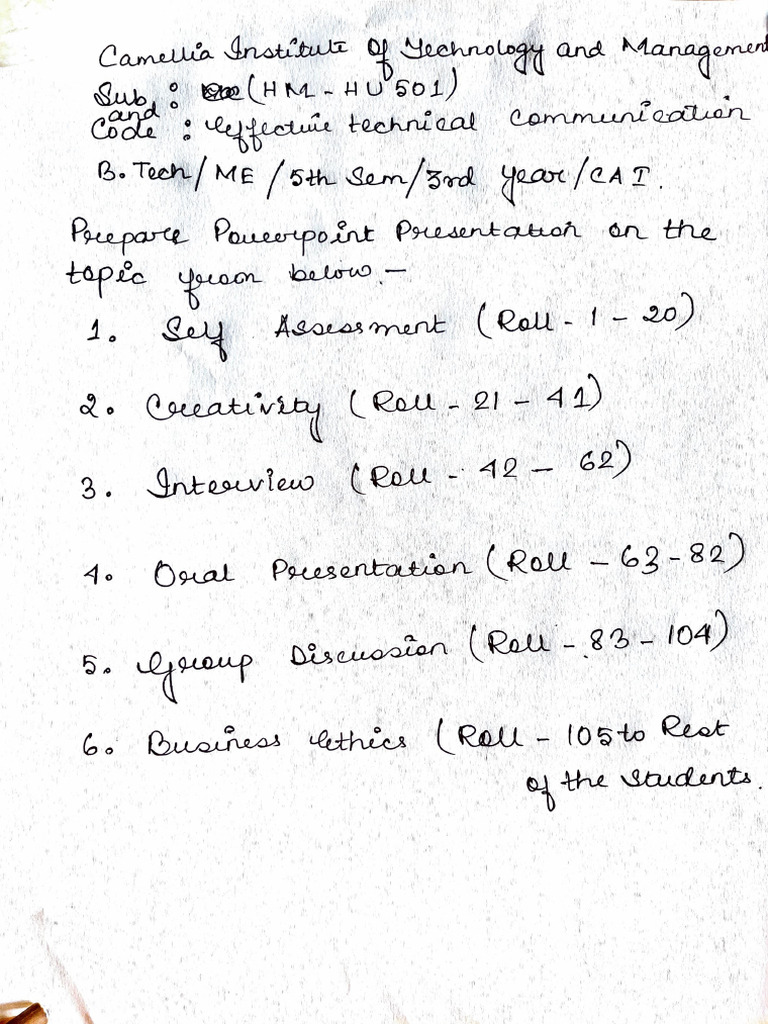 Camellia Institute Of Technology and Management
Sub : (HM-HU501)
and
Code : effective technical communication
B.Tech/ME/5th Sem/3rd year/CA I.
Prepare Powerpoint Presentation on the
topic from below.-
1. Self Assessment (Roll - 1 - 20)
2. Creativity (Roll - 21 - 41)
3. Interview (Roll - 42 - 62)
4. Oral Presentation (Roll - 63 - 82)
5. Group Discussion (Roll - 83 - 104)
6. Business ethics (Roll - 105 to Rest
of the students.